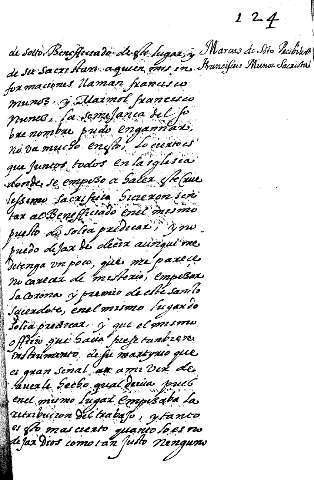 124
de soto Beneficiado de este lugar, y
de su Sacristan a quien mis in
formaciones llaman francisco
munoz, y Marmol francisco
nunes, la semejança del so
bre nombre pudo engañar,
no va mucho en esto, lo cierto es
que juntos todos en la iglesia
donde se empeso a hacer este crue
lissimo sacrificio hicieron sen
tar al Beneficiado en el mismo
puesto do solia predicar, y no
puedo dejar de decir aunque me
detenga un poco, que me parece
no carecer de misterio, empesar
la corona y premio de este santo
sacerdote, en el mismo lugar do
solia predicar, y que el mismo
officio que hacia fuese tambien
instrumento de su martyrio que
es gran señal a mi ver de
averle hecho qual devia pues
en el mismo lugar empesaba la
retribucion del trabajo, y tanto
es esto mas cierto quanto lo es no
dejar Dios como tan justo ninguno
Marcos de Soto Beneficiado
Franciscus Munos Sacrista